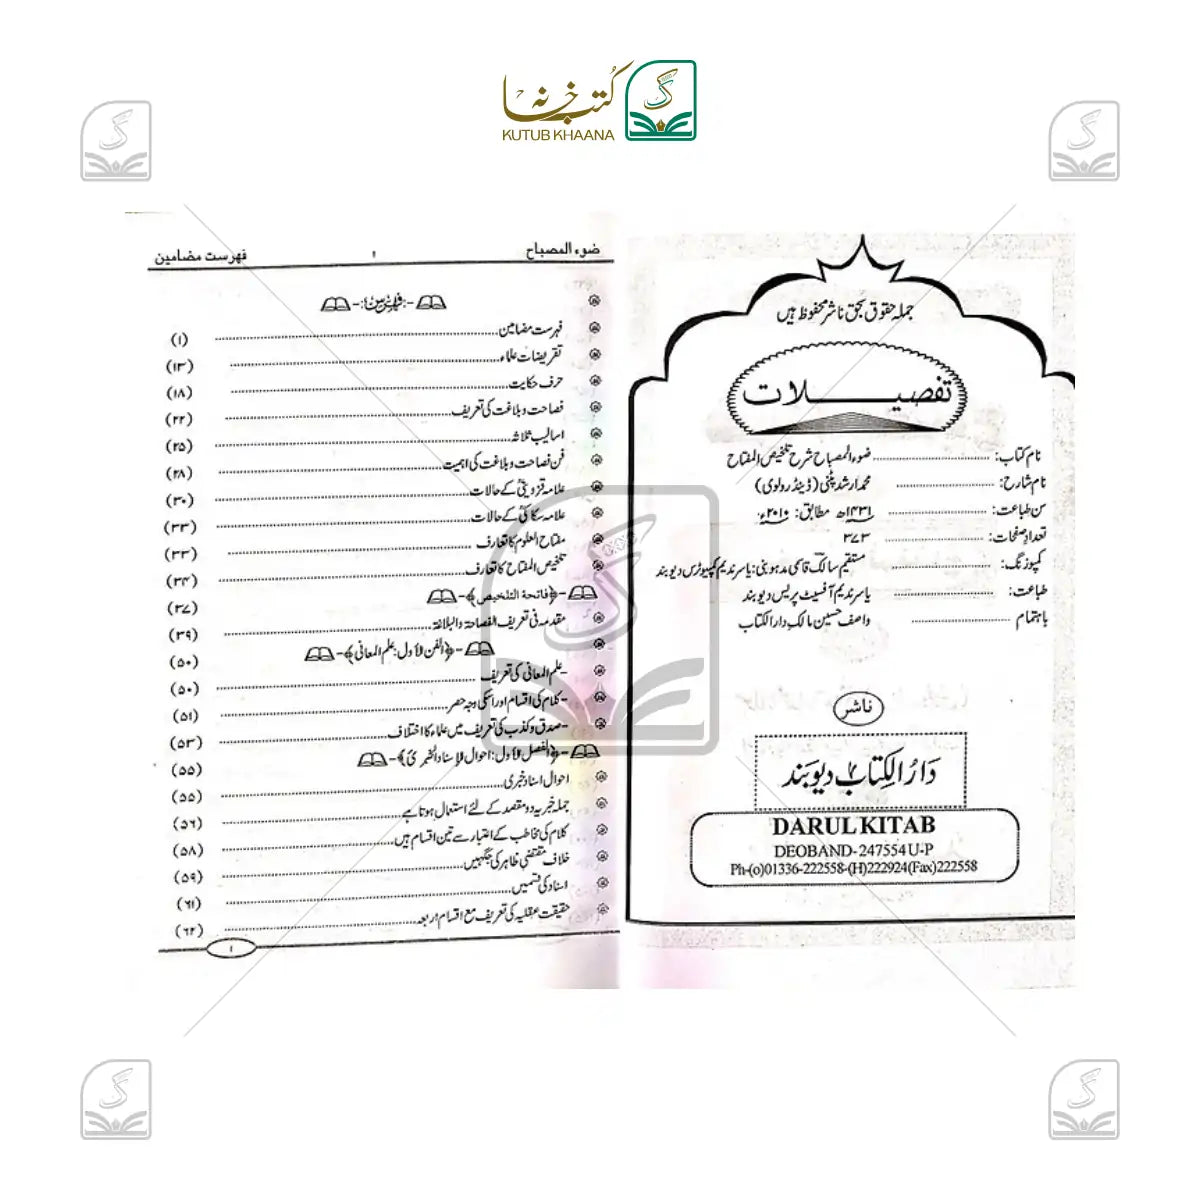 کتب خانہ
KUTUB KHAANA
جملہ حقوق بحق ناشر محفوظ ہیں
تفصیلات
نام کتاب: ............ ضوء المصباح شرح تلخیص المفتاح
نام شارح: ............ محمد ارشد پٹنی (ڈینڈرولوی)
سن طباعت: ............ ۱۴۳۱ھ مطابق: ۲۰۱۰ء
تعداد صفحات: ............ ۳۷۳
کمپوزنگ: ............ مستقیم سالک قاسمی مدہوبنی: یاسر ندیم کمپیوٹرس دیوبند
طباعت: ............ یاسر ندیم آفسیٹ پریس دیوبند
باہتمام ............ واصف حسین مالک دار الکتاب
ناشر
دَارُ الکِتَاب دیوبَند
DARUL KITAB
DEOBAND-247554 U-P
Ph-(o)01336-222558-(H)222924(Fax)222558
ضوء المصباح ۱ فہرست مضامین
-:فہرس:-
فہرست مضامین ............ (۱)
تقریضات علماء ............ (۱۳)
حرف حکایت ............ (۱۸)
فصاحت و بلاغت کی تعریف ............ (۲۲)
اسالیب ثلاثہ ............ (۲۵)
فن فصاحت و بلاغت کی اہمیت ............ (۲۸)
علامہ قزوینیؒ کے حالات ............ (۳۰)
علامہ سکاکیؒ کے حالات ............ (۳۳)
مفتاح العلوم کا تعارف ............ (۳۳)
تلخیص المفتاح کا تعارف ............ (۳۴)
-﴿فاتحة التلخيص﴾- (۳۷)
مقدمہ فی تعریف الفصاحۃ والبلاغۃ ............ (۳۹)
-﴿الفن الأول: علم المعانی﴾- (۵۰)
-علم المعانی کی تعریف ............ (۵۰)
-کلام کی اقسام اور اسکی وجہ حصر ............ (۵۱)
-صدق و کذب کی تعریف میں علماء کا اختلاف ............ (۵۳)
-﴿الفصل الأول: احوال الإسناد الخبری﴾- (۵۵)
احوال اسناد خبری ............ (۵۵)
جملہ خبریہ دو مقصد کے لئے استعمال ہوتا ہے ............ (۵۶)
کلام کی مخاطب کے اعتبار سے تین اقسام ہیں ............ (۵۸)
خلاف مقتضیٰ ظاہر کی جگہیں ............ (۵۹)
اسناد کی قسمیں ............ (۶۱)
حقیقت عقلیہ کی تعریف مع اقسام اربعہ ............ (۶۲)
۱